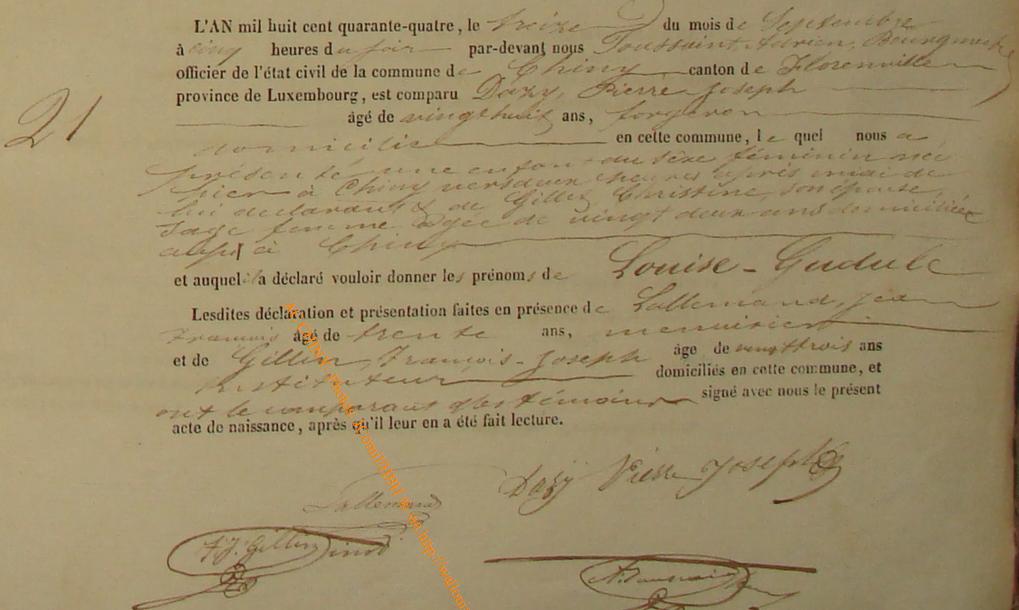 L'AN mil huit cent quarante-quatre, le treize du mois de Septembre
à cinq heures du soir par-devant nous Toussaint, Adrien, Bourgmestre
officier de l'état civil de la commune de Chiny canton de Florenville
province de Luxembourg, est comparu Dazy, Pierre Joseph
21
âgé de vingthuit ans, forgeron
domicilié en cette commune, le quel nous a
présenté une enfant du sexe féminin née
hier à Chiny vers deux heures après midi de
lui déclarant & de Gillin Christine, son épouse,
sage femme, agée de vingt deux ans domiciliée
aussi à Chiny
et auquel il a déclaré vouloir donner les prénoms de Louise-Gudule
Lesdites déclaration et présentation faites en présence de Lallemand, Jean
François âgé de trente ans, menuisier
et de Gillin, François-Joseph âge de vingttrois ans
instituteur domiciliés en cette commune, et
ont le comparant & les témoins signé avec nous le présent
acte de naissance, après qu'il leur en a été fait lecture.
Dazy Pierre Joseph
Lallemand
F.J. Gillin
A. Toussaint